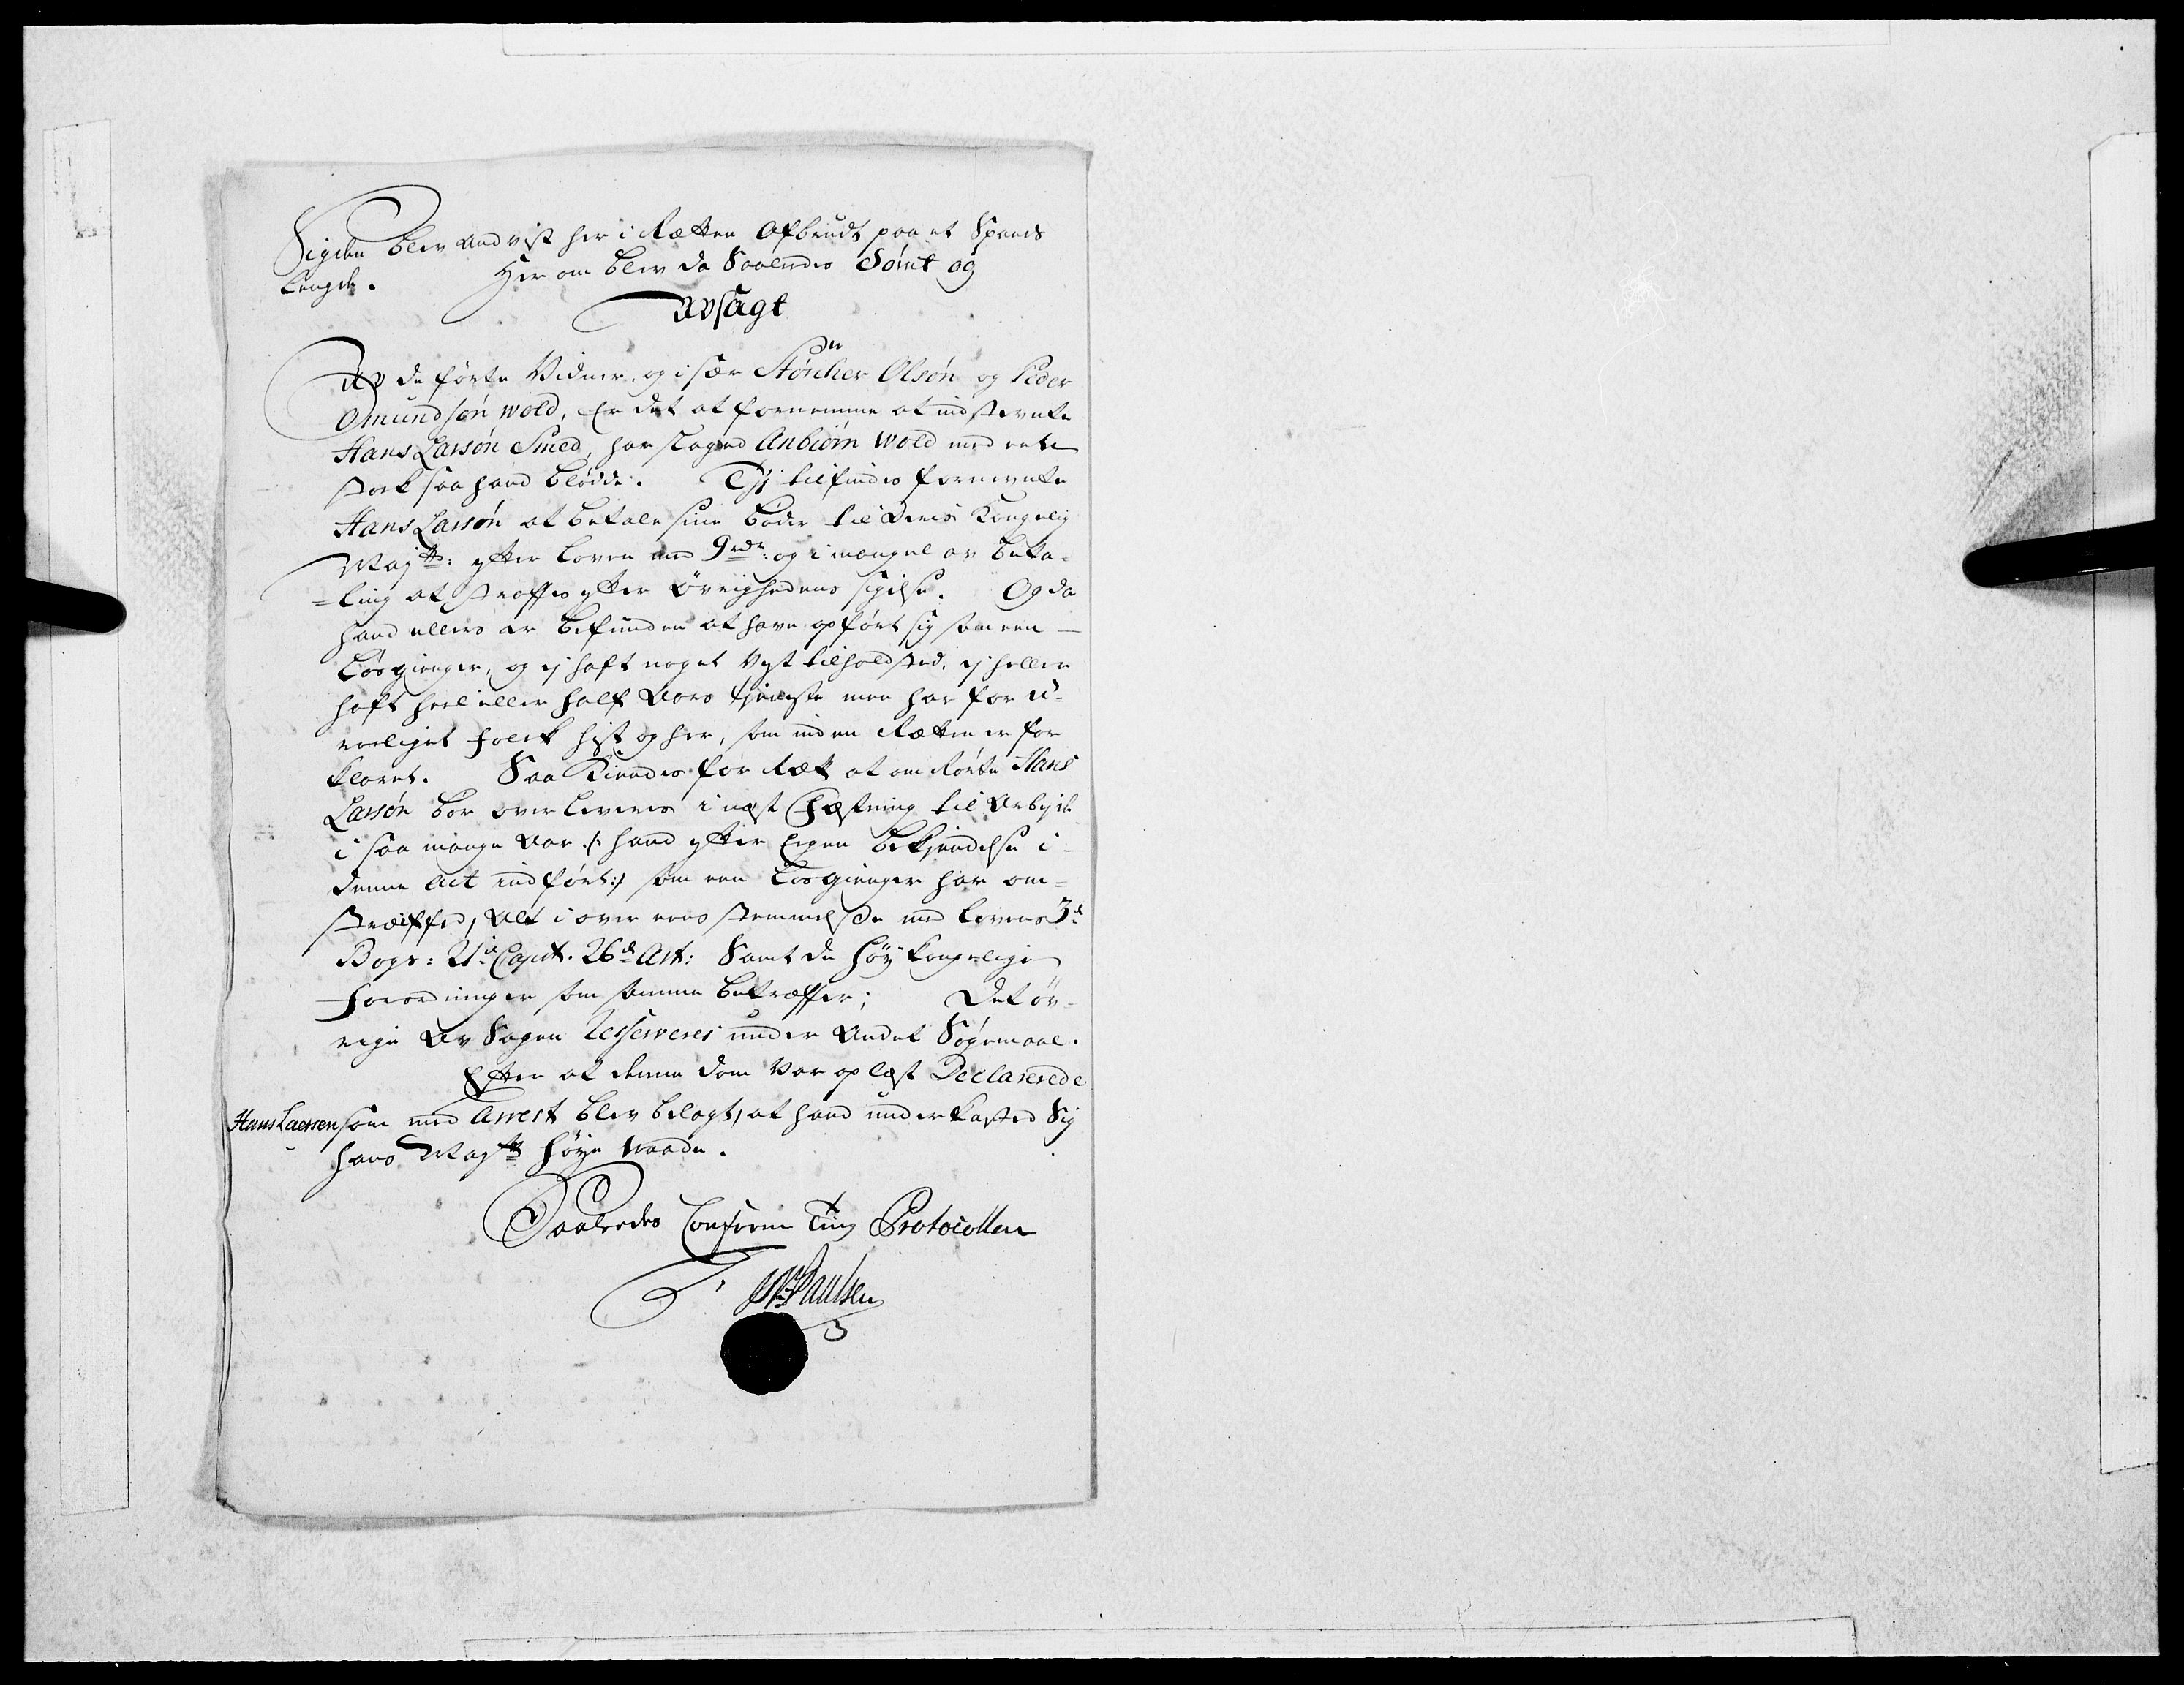 Sigden blev and vist her i Retten Afbrudt paa et Spands
Længde. Her om blev da Saaledes Dömt og
Avsagt
Av de förte Vidner, og i sær Störcker Olsön og Peder
Omundsön wold, Er det at fornemme at indstevnte
Hans Larsön Smed, har slaged Anbiörn Wold med en
stock saa hand blödde. Thj tilfindes fornevnte
Hans Larsön at betale sine böder til Deris Kongelig
Majtt: efter loven med 9 rdr: og i mangel av beta-
=ling at straffes efter Øvrighedens sigelse. Og da
hand ellers er befunden at have opfört sig som een
Lösgienger, og ej haft noget Vist tilhold sted, ej heller
haft heel eller half Aars tjeneste men har for u-
roeliget folck hist og her, som inden Retten er for
klaret. Saa Kiendes for Ræt at om rörte Hans
Larsön bör overleveres i næst Fæstning til Arbejde
i saa mange Aar /: hand efter Egen bekjendelse i
denne Act indfört :/ som een Lösgienger har om=
streiffed, Alt i over eens stemmelse med Lovens 3d
Bogs: 21d Capit. 26d Art: Samt de höy kongelige
Forordninger som samme betræffer; Det öv-
rige Av Sagen Resserveres under Andet Sögemaal.
Efter at denne dom var op læst Declarerede
Hans Laersen som med Arrest blev belagt, at hand underkasted Sig
hans Majtts höye Naade.
Saaledes Conform Ting Protocollen
T. Paulsen